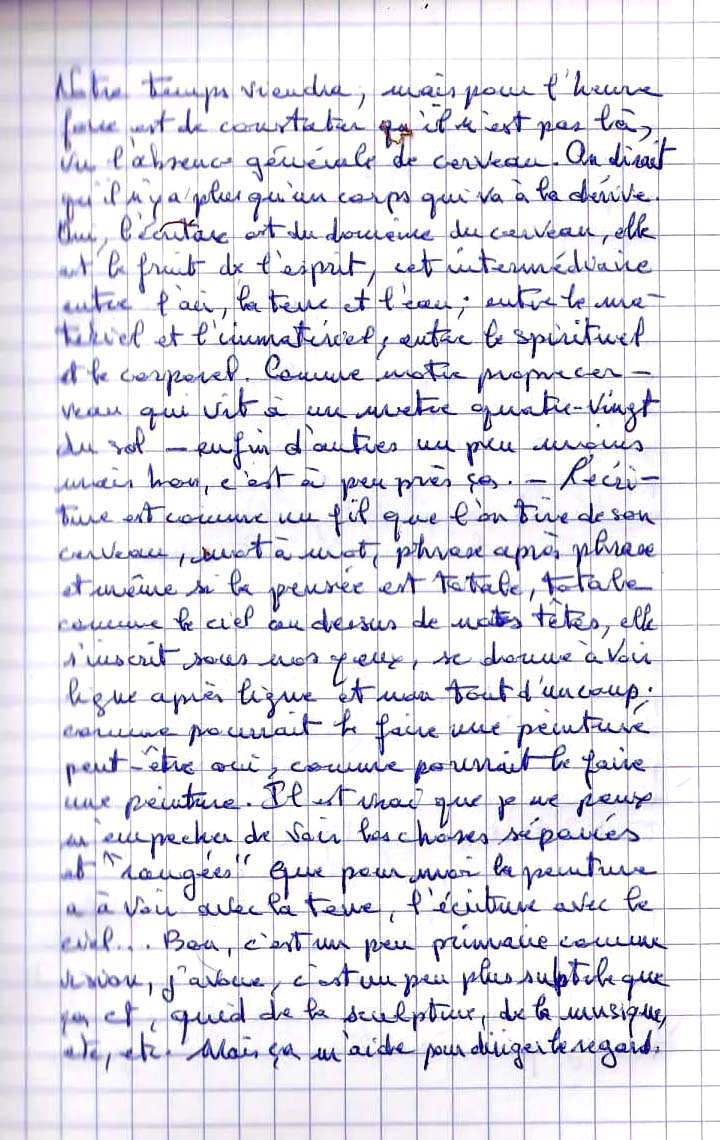 Notre temps viendra, mais pour l'heure
force est de constater qu'il n'est pas là,
vu l'absence générale de cerveau. On dirait
qu'il n'y a plus qu'un corps qui va à la dérive.
Oui, l'écriture est du domaine du cerveau, elle
est le fruit de l'esprit, cet intermédiaire
entre l'air, la terre et l'eau ; entre le ma-
tériel et l'immatériel, entre le spirituel
et le corporel. Comme notre propre cer-
veau qui vit à un mètre quatre-vingt
du sol - enfin d'autres un peu moins
mais bon, c'est à peu près ça. - L'écri-
ture est comme un fil que l'on tire de son
cerveau, mot à mot, phrase après phrase
et même si la pensée est totale, totale
comme le ciel au dessus de nos têtes, elle
s'inscrit sous nos yeux, se donne à voir
ligne après ligne et non tout d'un coup.
comme pourrait le faire une peinture
peut-être oui, comme pourrait le faire
une peinture. Il est vrai que je ne peux
m'empecher de voir les choses séparées
et "rangées" que pour moi la peinture
a à voir avec la terre, l'écriture avec le
ciel... Bon, c'est un peu primaire comme
vision, j'avoue, c'est un peu plus subtile que
ça et, quid de la sculpture, de la musique,
etc, etc. Mais ça m'aide pour diriger le regard.